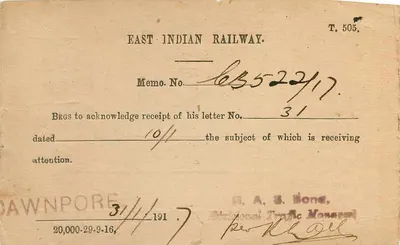 T. 505.
EAST INDIAN RAILWAY.
Memo. No. CB522/17
BEGS to acknowledge receipt of his letter No. 31
dated 10/1 the subject of which is receiving
attention.
CAWNPORE
31/1/1917
20,000-29-9-16.
Divisional Traffic Manager
per